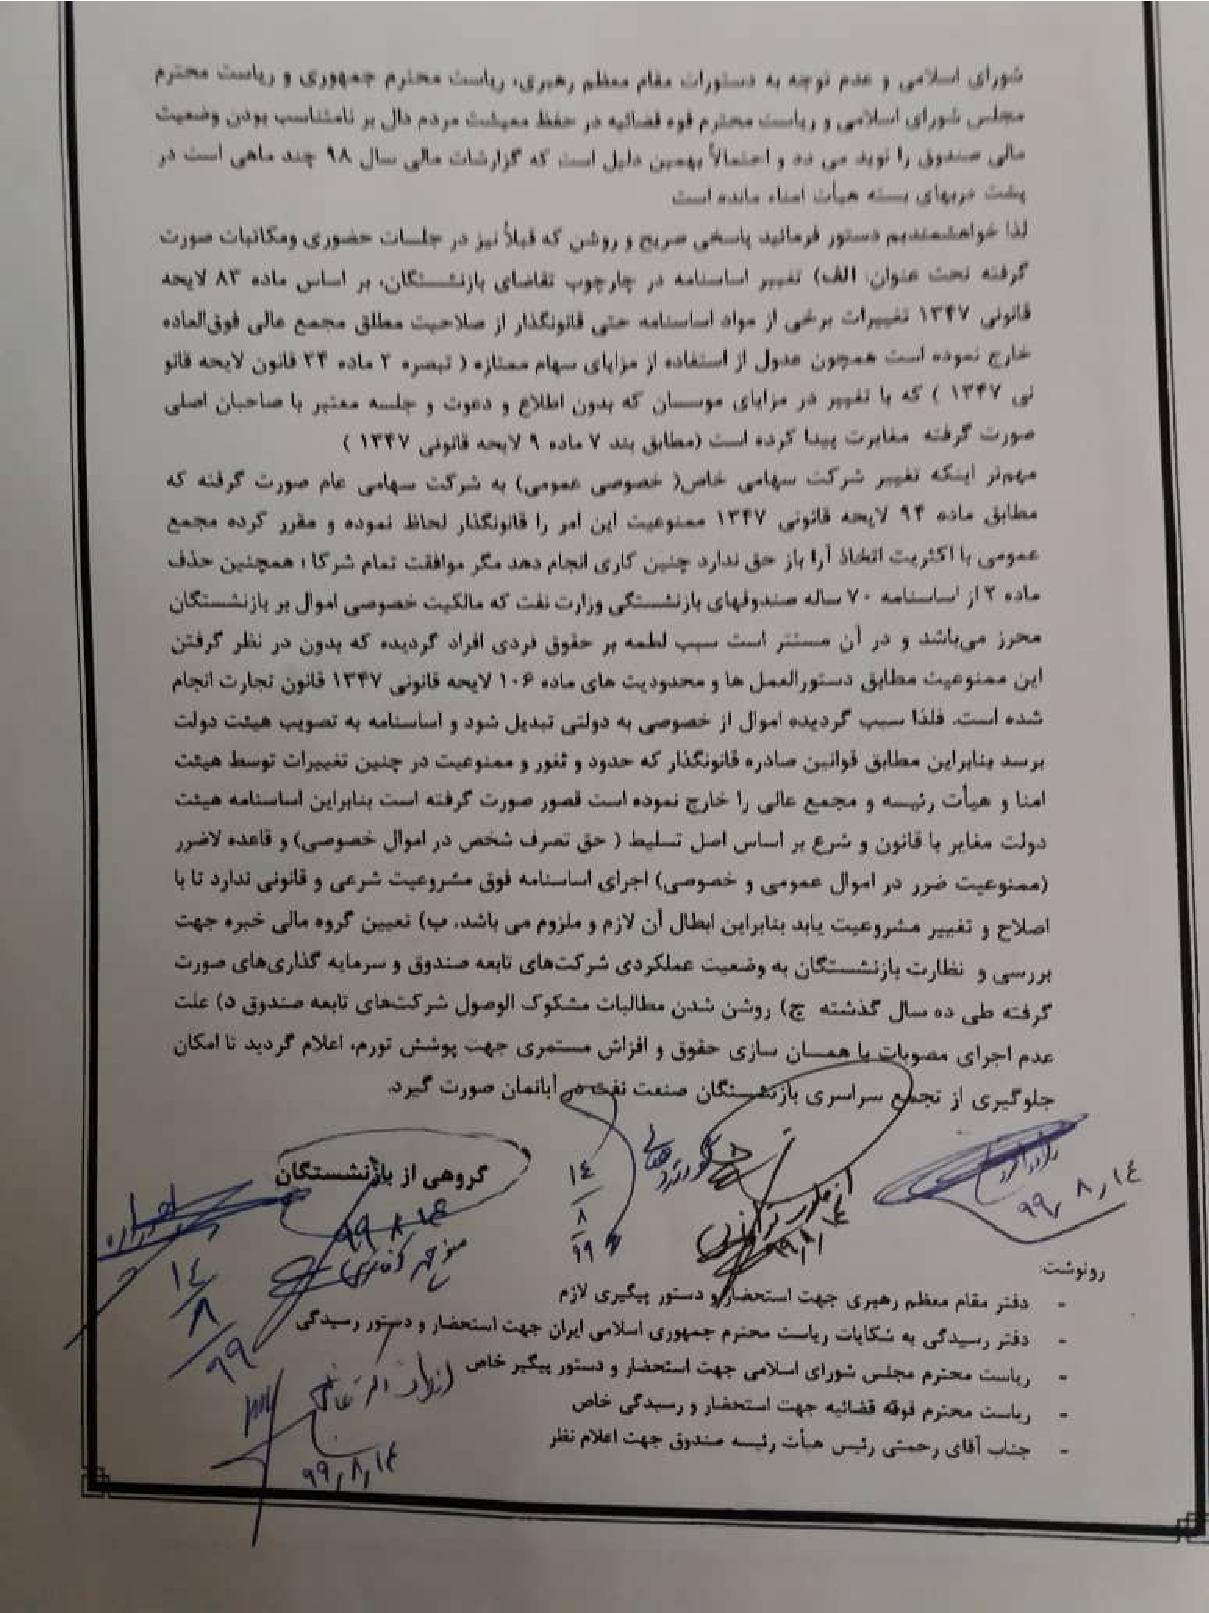 شورای اسلامی و عدم توجه به دستورات مقام معظم رهبری، ریاست محترم جمهوری و ریاست محترم
مجلس شورای اسلامی و ریاست محترم قوه قضائیه در حفظ معیشت مردم دال بر نامتناسب بودن وضعیت
مالی صندوق را نوید می دد و احتمالاً بهمین دلیل است که گزارشات مالی سال ۹۸ چند ماهی است در
پشت دربهای بسته هیأت امناء مانده است
لذا خواهشمندیم دستور فرمائید پاسخی صریح و روشن که قبلاً نیز در جلسات حضوری ومکاتبات صورت
گرفته تحت عنوان: الف) تغییر اساسنامه در چارچوب تقاضای بازنشستگان، بر اساس ماده ۸۳ لایحه
قانونی ۱۳۴۷ تغییرات برخی از مواد اساسنامه حتی قانونگذار از صلاحیت مطلق مجمع عالی فوق‌العاده
خارج نموده است همچون عدول از استفاده از مزایای سهام ممتازه ( تبصره ۲ ماده ۲۴ قانون لایحه قانو
نی ۱۳۴۷ ) که با تغییر در مزایای موسسان که بدون اطلاع و دعوت و جلسه معتبر با صاحبان اصلی
صورت گرفته مغایرت پیدا کرده است (مطابق بند ۷ ماده ۹ لایحه قانونی ۱۳۴۷ )
مهمتر اینکه تغییر شرکت سهامی خاص( خصوصی عمومی) به شرکت سهامی عام صورت گرفته که
مطابق ماده ۹۴ لایحه قانونی ۱۳۴۷ ممنوعیت این امر را قانونگذار لحاظ نموده و مقرر کرده مجمع
عمومی با اکثریت اتخاذ آرا باز حق ندارد چنین کاری انجام دهد مگر موافقت تمام شرکا ؛ همچنین حذف
ماده ۲ از اساسنامه ۷۰ ساله صندوقهای بازنشستگی وزارت نفت که مالکیت خصوصی اموال بر بازنشستگان
محرز می‌باشد و در آن مستتر است سبب لطمه بر حقوق فردی افراد گردیده که بدون در نظر گرفتن
این ممنوعیت مطابق دستورالعمل ها و محدودیت های ماده ۱۰۶ لایحه قانونی ۱۳۴۷ قانون تجارت انجام
شده است. فلذا سبب گردیده اموال از خصوصی به دولتی تبدیل شود و اساسنامه به تصویب هیئت دولت
برسد بنابراین مطابق قوانین صادره قانونگذار که حدود و ثغور و ممنوعیت در چنین تغییرات توسط هیئت
امنا و هیأت رئیسه و مجمع عالی را خارج نموده است قصور صورت گرفته است بنابراین اساسنامه هیئت
دولت مغایر با قانون و شرع بر اساس اصل تسلیط ( حق تصرف شخص در اموال خصوصی) و قاعده لاضرر
(ممنوعیت ضرر در اموال عمومی و خصوصی) اجرای اساسنامه فوق مشروعیت شرعی و قانونی ندارد تا با
اصلاح و تغییر مشروعیت یابد بنابراین ابطال آن لازم و ملزوم می باشد. ب) تعیین گروه مالی خبره جهت
بررسی و نظارت بازنشستگان به وضعیت عملکردی شرکت‌های تابعه صندوق و سرمایه گذاری‌های صورت
گرفته طی ده سال گذشته ج) روشن شدن مطالبات مشکوک الوصول شرکت‌های تابعه صندوق د) علت
عدم اجرای مصوبات یا همسان سازی حقوق و افزاش مستمری جهت پوشش تورم، اعلام گردید تا امکان
جلوگیری از تجمع سراسری بازنشستگان صنعت نفت در آبانمان صورت گیرد.
گروهی از بازنشستگان
۹۹/۸/۱۴
۱۴/۸/۹۹
۹۹/۸/۱۴
۱۴/۸/۹۹
۹۹/۸/۱۴
رونوشت:
- دفتر مقام معظم رهبری جهت استحضار و دستور پیگیری لازم
- دفتر رسیدگی به شکایات ریاست محترم جمهوری اسلامی ایران جهت استحضار و دستور رسیدگی
- ریاست محترم مجلس شورای اسلامی جهت استحضار و دستور پیگیر خاص
- ریاست محترم فوقه قضائیه جهت استحضار و رسیدگی خاص
- جناب آقای رحمتی رئیس هیأت رئیسه صندوق جهت اعلام نظر